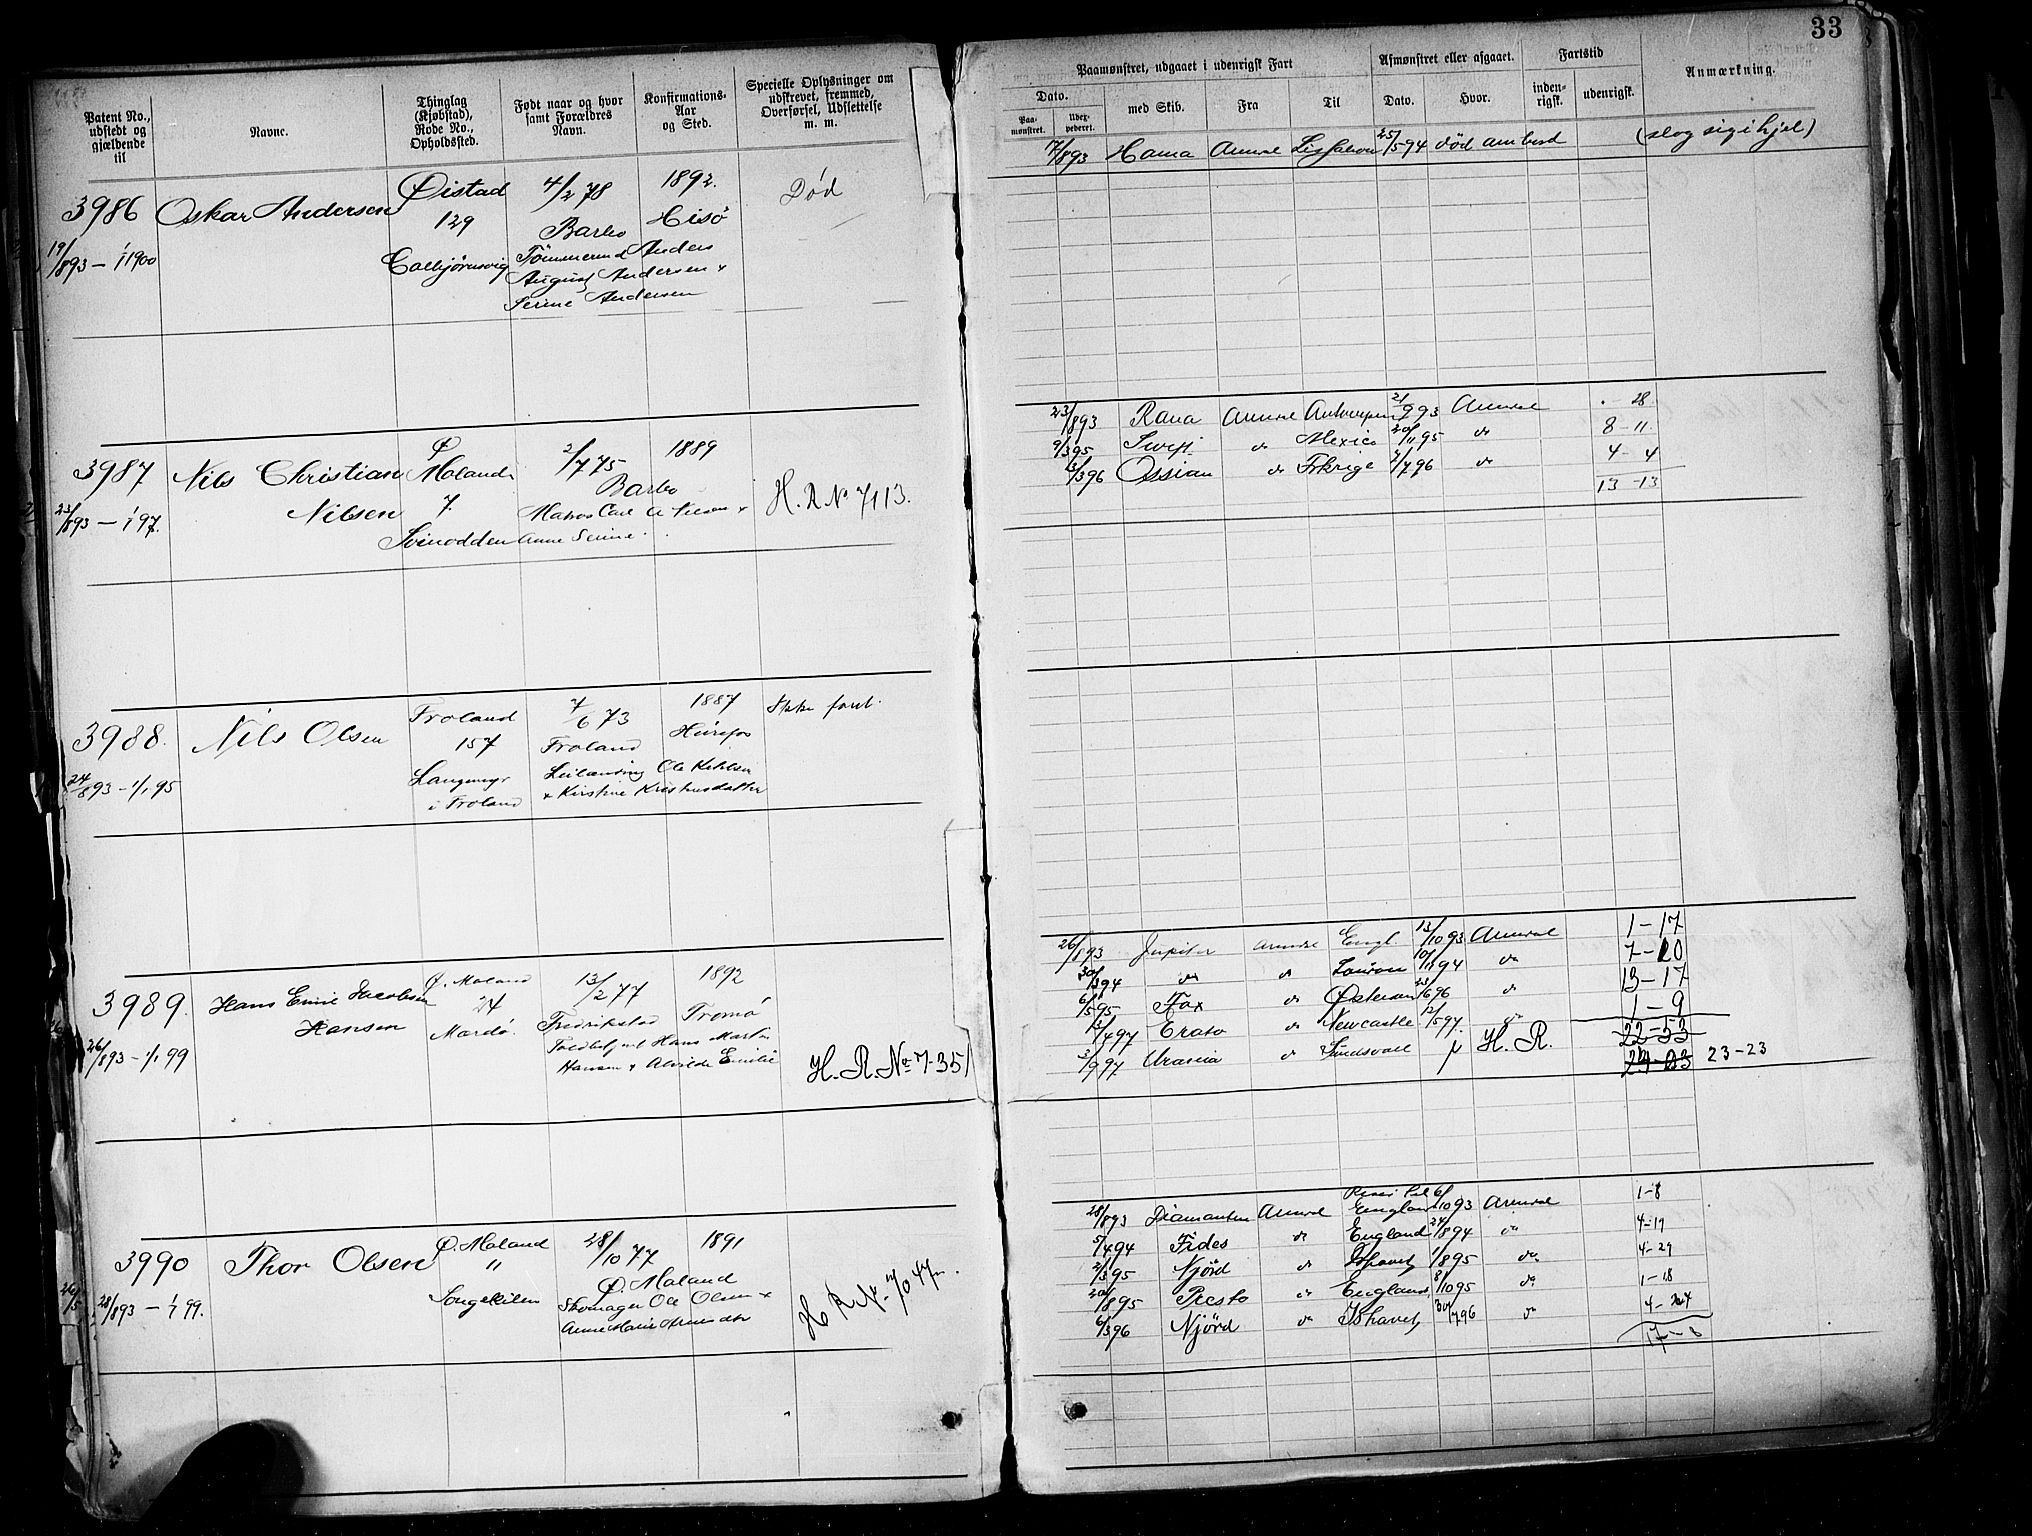 33
Patent No., udstedt og gjældende til
Navne.
Thinglag (Kjøbstad), Rode No., Opholdssted.
Født naar og hvor samt Forældres Navn.
Konfirmations-Aar og Sted.
Specielle Oplysninger om udskrevet, fremmed, Overførsel, Udslettelse m. m.
Paamønstret, udgaaet i udenrigsk Fart
Afmønstret eller afgaaet.
Fartstid
Anmærkning.
Dato.
med Skib.
Fra
Til
Dato.
Hvor.
inden-rigsk.
udenrigsk.
Paa-mønstret.
Udex-pederet.
7/893 Hama Arendal Lissabon 25/594 død ombord (slog sig ihjel)
3986 Oskar Andersen Øistad 4/2 78 1892. Død
129 Barbo Hisö
19/893 – 1/1 1900 Colbjörnsvig Tömmermd Anders
August Andersen +
Serine Andersen
23/893 Rana Arendal Antwerpen 21/9 93 Arendal . – 28
9/395 do Mexico 20/11 95 do 8 – 11
13/396 Ossian do 2/796 do 4 – 4
13 – 13
3987 Nils Christian Ø Moland 2/7 75 1889
Nilsen 7. Barbo H. R. No 7113.
23/893 – 1/1 97. Matros Carl A Nilsen +
Svinodden Anne Serine.
3988. Nils Olsen Froland 7/6 73 1887 Ikke faret.
157 Froland
24/893 – 1/1 95 Langemyr Leilænding Ole
i Froland + Kirstine
26/893 Jupiter Arendal Engl. 13/10 93 Arendal 1 – 17
30/394 do do London 10/11 94 do 7 – 20
6/595 Fax do 23/696 do 13 – 17
13/497 Erato do Newcastle 12/597. do 1 – 9
22 – 53
3/997 Urania do Sundsvall H. R. 23 – 23
3989. Hans Emil Jacobsen Ø. Moland 13/2 77 1892
Hansen 24 Fredrikstad Tromö
26/893 – 1/1 99 Mardö. Hans Martin
Hansen + Alvilde Emilie H. R. No 7351
28/893 Diamanten Arendal England 6/10 93 Arendal 1 – 8
5/494 Fides do England 24/894 do 4 – 19
2/395 Njörd do Ishavet 1/895 do 4 – 29
20/895 Presto do England 8/1095 do 1 – 18
6/396 Njörd do Ishavet 30/796 do 4 – 24
17 – 8
3990 Thor Olsen Ø. Moland 28/10 77 1891
" Ø. Moland
28/893 – 1/1 99. Songekilen Skomager Ole Olsen +
Anne Marie H R No 7047.